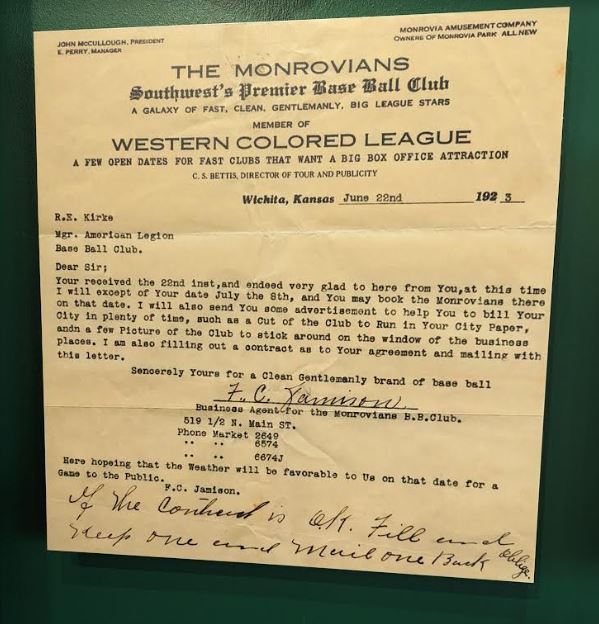 JOHN McCULLOUGH, PRESIDENT
E. PERRY, MANAGER
MONROVIA AMUSEMENT COMPANY
OWNERS OF MONROVIA PARK ALL NEW
THE MONROVIANS
Southwest's Premier Base Ball Club
A GALAXY OF FAST, CLEAN, GENTLEMANLY, BIG LEAGUE STARS
MEMBER OF
WESTERN COLORED LEAGUE
A FEW OPEN DATES FOR FAST CLUBS THAT WANT A BIG BOX OFFICE ATTRACTION
C. S. BETTIS, DIRECTOR OF TOUR AND PUBLICITY
Wichita, Kansas June 22nd 192 3
R.E. Kirke
Mgr. American Legion
Base Ball Club.
Dear Sir;
Your received the 22nd inst,and endeed very glad to here from You,at this time
I will except of Your date July the 8th, and You may book the Monrovians there
on that date. I will also send You some advertisement to help You to bill Your
City in plenty of time, such as a Cut of the Club to Run in Your City Paper,
andn a few Picture of the Club to stick around on the window of the business
places. I am also filling out a contract as to Your agreement and mailing with
this letter.
Sencerely Yours for a Clean Gentlemanly brand of base ball
F. C. Jamison.
Business Agent for the Monrovians B.B.Club.
519 1/2 N. Main ST.
Phone Market 2649
" " 6574
" " 6674J
Here hopeing that the Weather will be favorable to Us on that date for a
Game to the Public.
F.C. Jamison.
If the Contract is O.K. Fill and
Keep one and Mail one Back oblige.